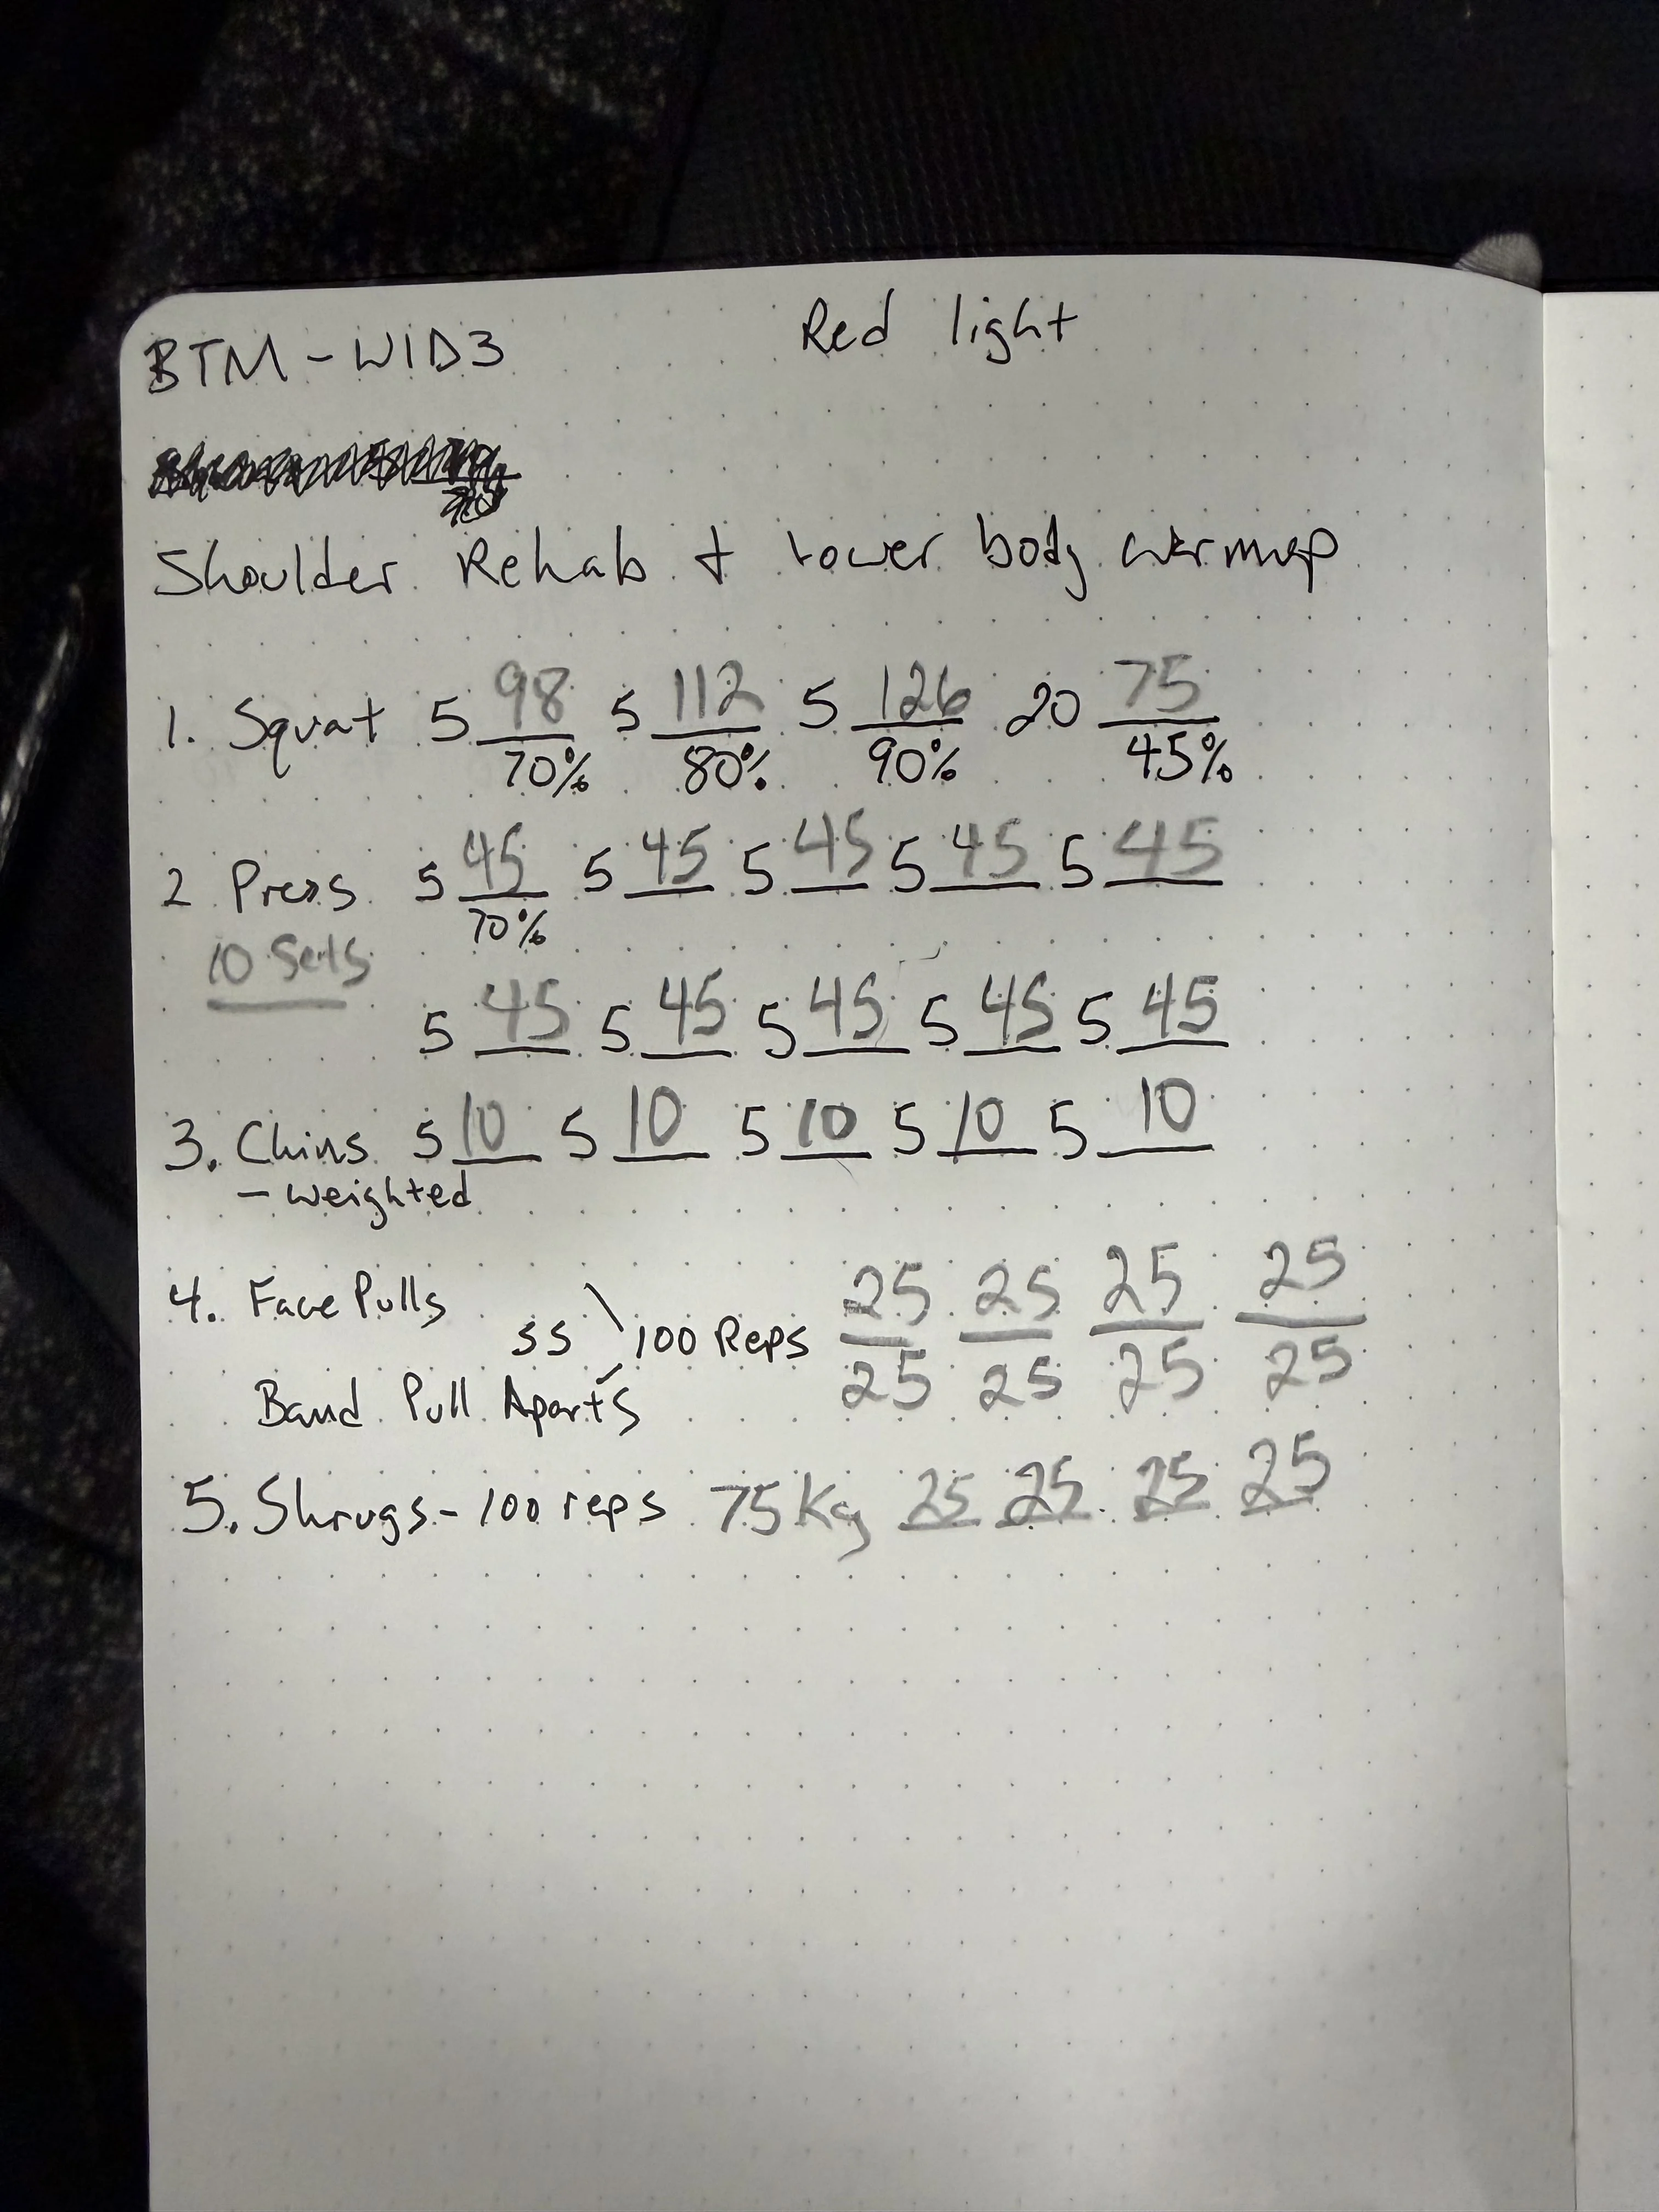 BTM - W1D3 Red light
Shoulder Rehab + Lower body warmup
1. Squat 5 98 5 112 5 126 20 75
70% 80% 90% 45%
2 Press 5 45 5 45 5 45 5 45 5 45
70%
10 Sets
5 45 5 45 5 45 5 45 5 45
3. Chins 5 10 5 10 5 10 5 10 5 10
- weighted
4. Face Pulls 25 25 25 25
SS 100 Reps
Band Pull Aparts 25 25 25 25
5. Shrugs - 100 reps 75 Kg 25 25 25 25